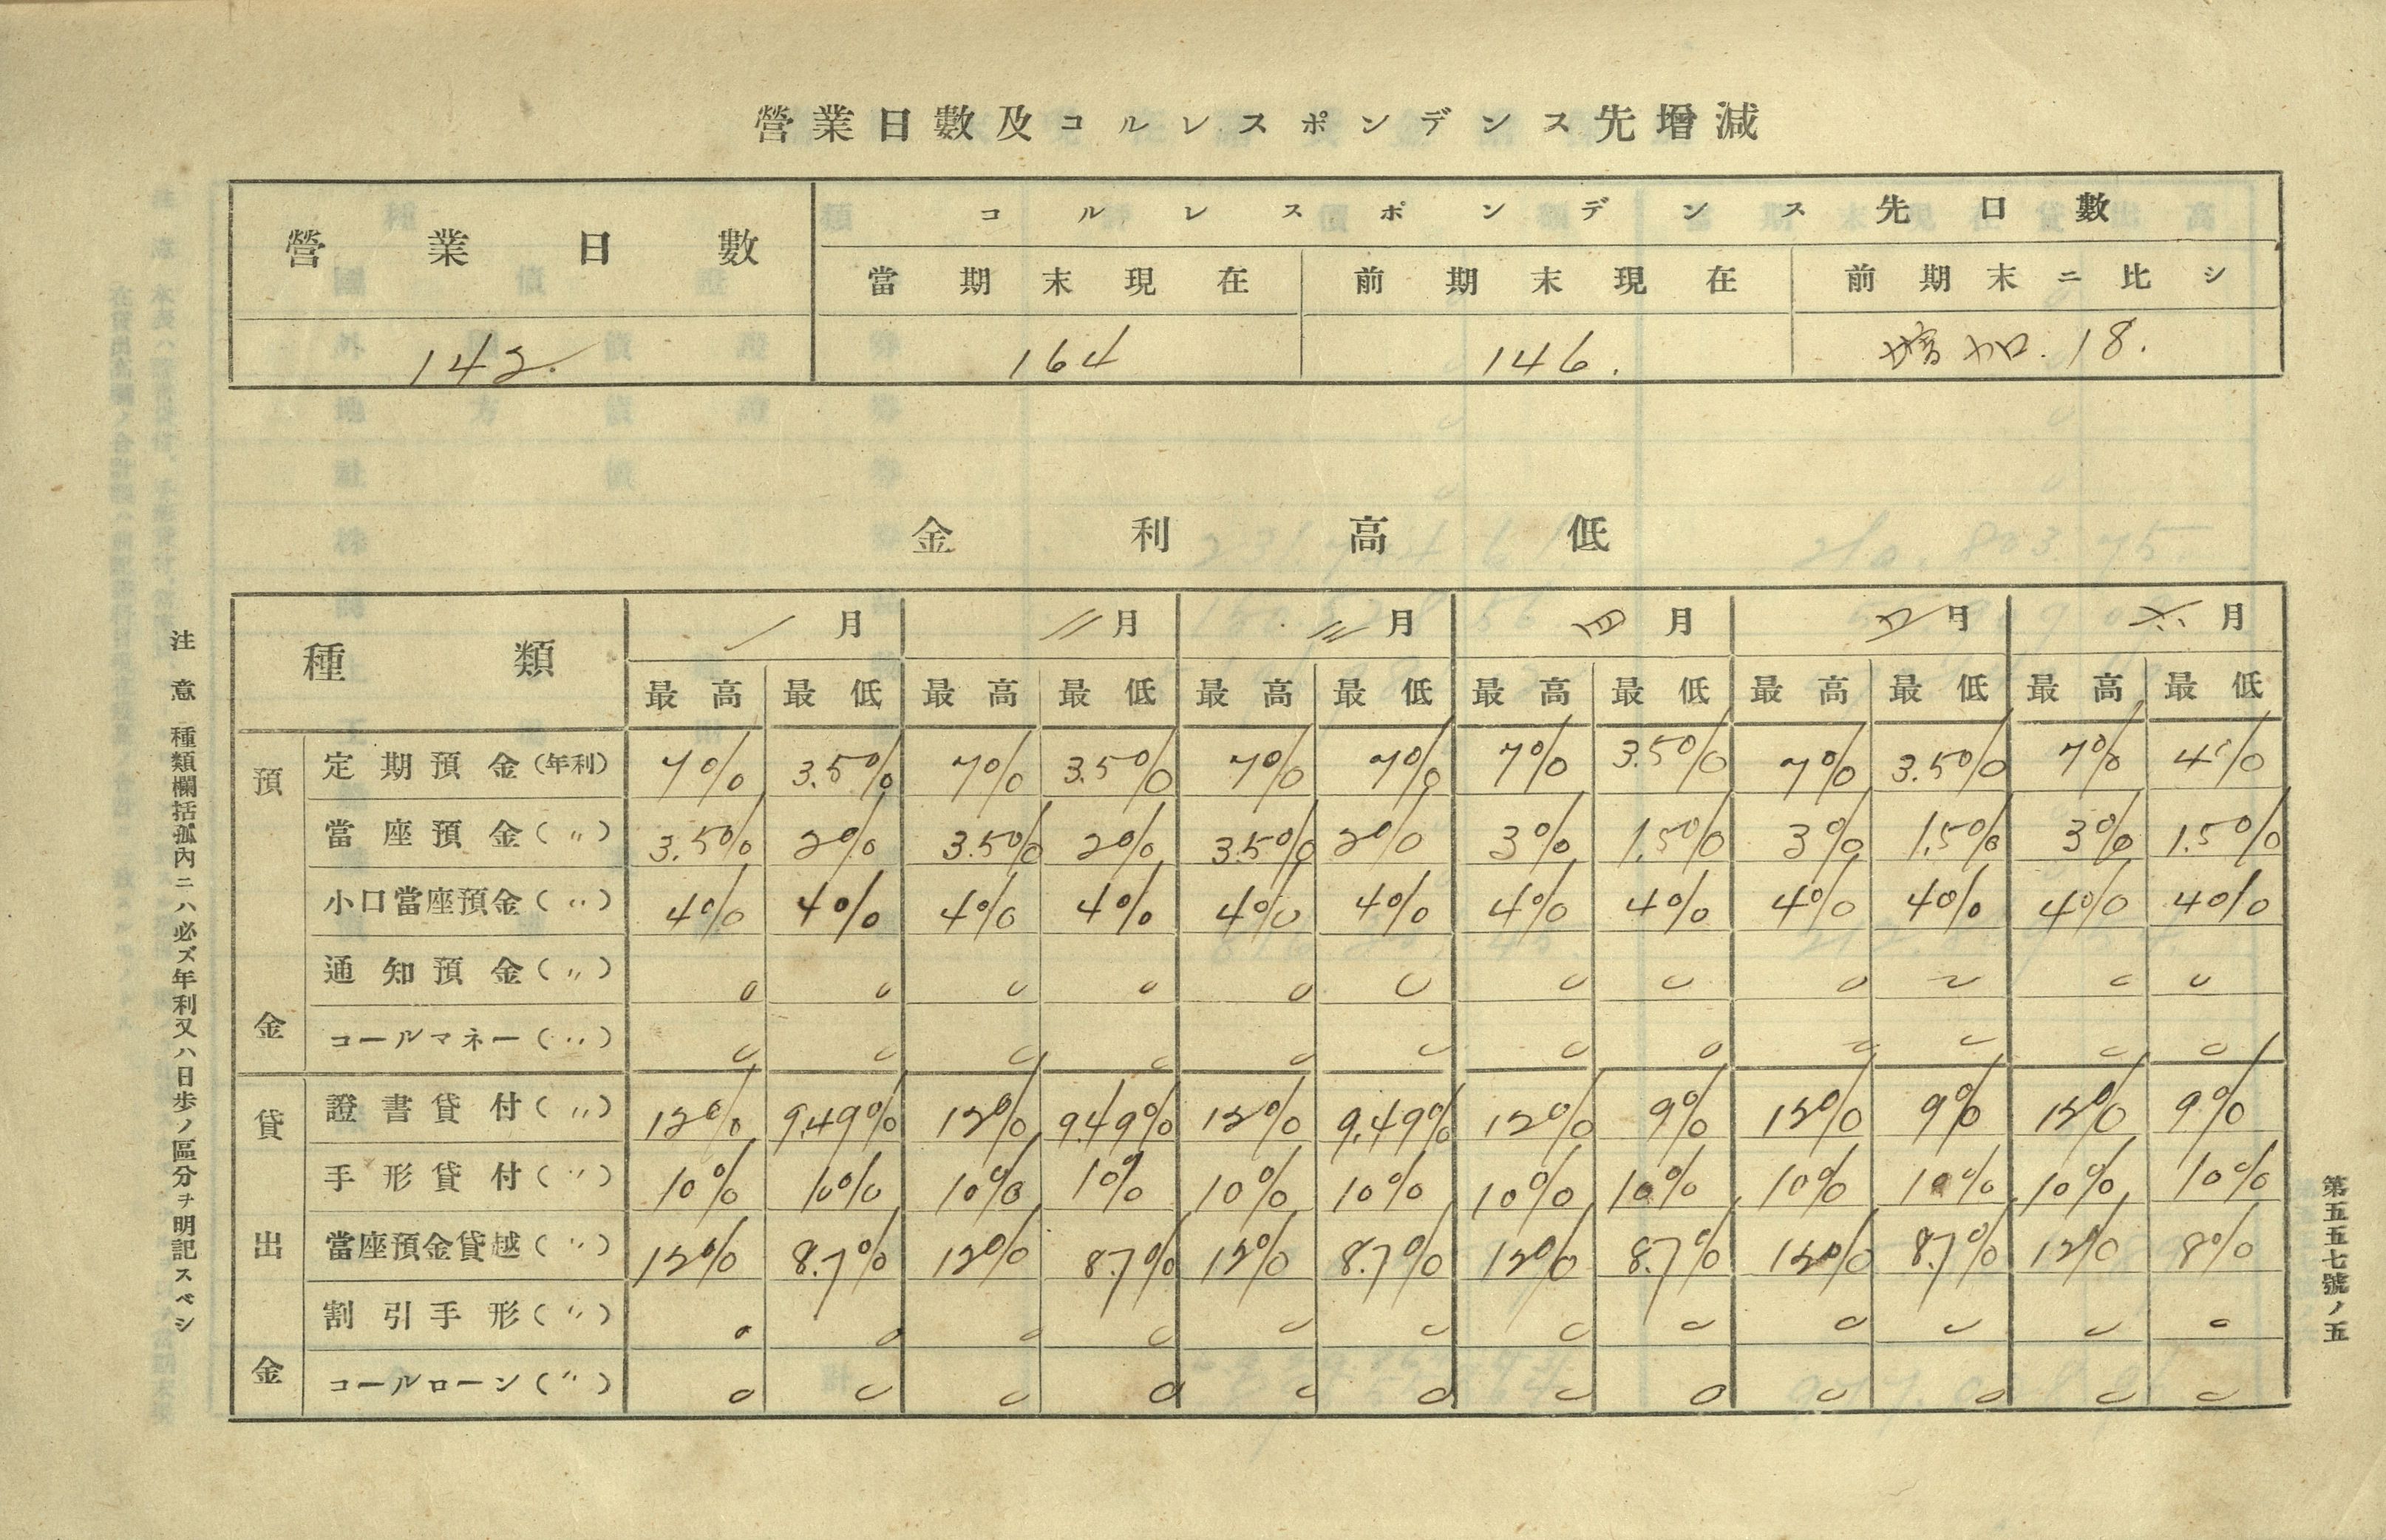 營業日數及コルレスポンデンス先增減
營業日數 コルレスポンデンス先口數
當期末現在 前期末現在 前期末ニ比シ
142. 164 146. 増加. 18.
金利高低
種類 一月 二月 三月 四月 五月 六月
最高 最低 最高 最低 最高 最低 最高 最低 最高 最低 最高 最低
預金
定期預金(年利) 7% 3.5% 7% 3.5% 7% 7% 7% 3.5% 7% 3.5% 7% 4%
當座預金(〃) 3.5% 2% 3.5% 2% 3.5% 2% 3% 1.5% 3% 1.5% 3% 1.5%
小口當座預金(〃) 4% 4% 4% 4% 4% 4% 4% 4% 4% 4% 4% 4%
通知預金(〃) 0 0 0 0 0 0 0 0 0 0 0 0
コールマネー(〃) 0 0 0 0 0 0 0 0 0 0 0 0
貸出金
證書貸付(〃) 12% 9.49% 12% 9.49% 12% 9.49% 12% 9% 12% 9% 12% 9%
手形貸付(〃) 10% 10% 10% 10% 10% 10% 10% 10% 10% 10% 10% 10%
當座預金貸越(〃) 12% 8.7% 12% 8.7% 12% 8.7% 12% 8.7% 12% 8.7% 12% 8%
割引手形(〃) 0 0 0 0 0 0 0 0 0 0 0 0
コールローン(〃) 0 0 0 0 0 0 0 0 0 0 0 0
注意 種類欄括孤內ニハ必ズ年利又ハ日步ノ區分ヲ明記スベシ
第五五七號ノ五